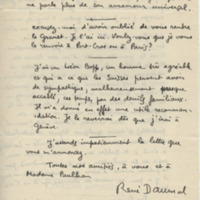 ne parle plus de son armement universel.
Excusez-moi d'avoir oublié de vous rendre
le Granet. Je l'ai ici. Voulez-vous que je vous
le renvoie à Port-Cros ou à Paris ?
J'ai vu Léon Bopp, un homme très agréable
et qui a ce que les Suisses peuvent avoir
de sympathique, malheureusement presque
accablé, ces temps, par des deuils familiaux.
Il m'a donné en effet une utile recommandation.
Je le reverrai dès que j'irai à
Genève.
J'attends impatiemment la lettre que
vous m'annoncez.
Toutes nos amitiés, à vous et à
Madame Paulhan
René Daumal